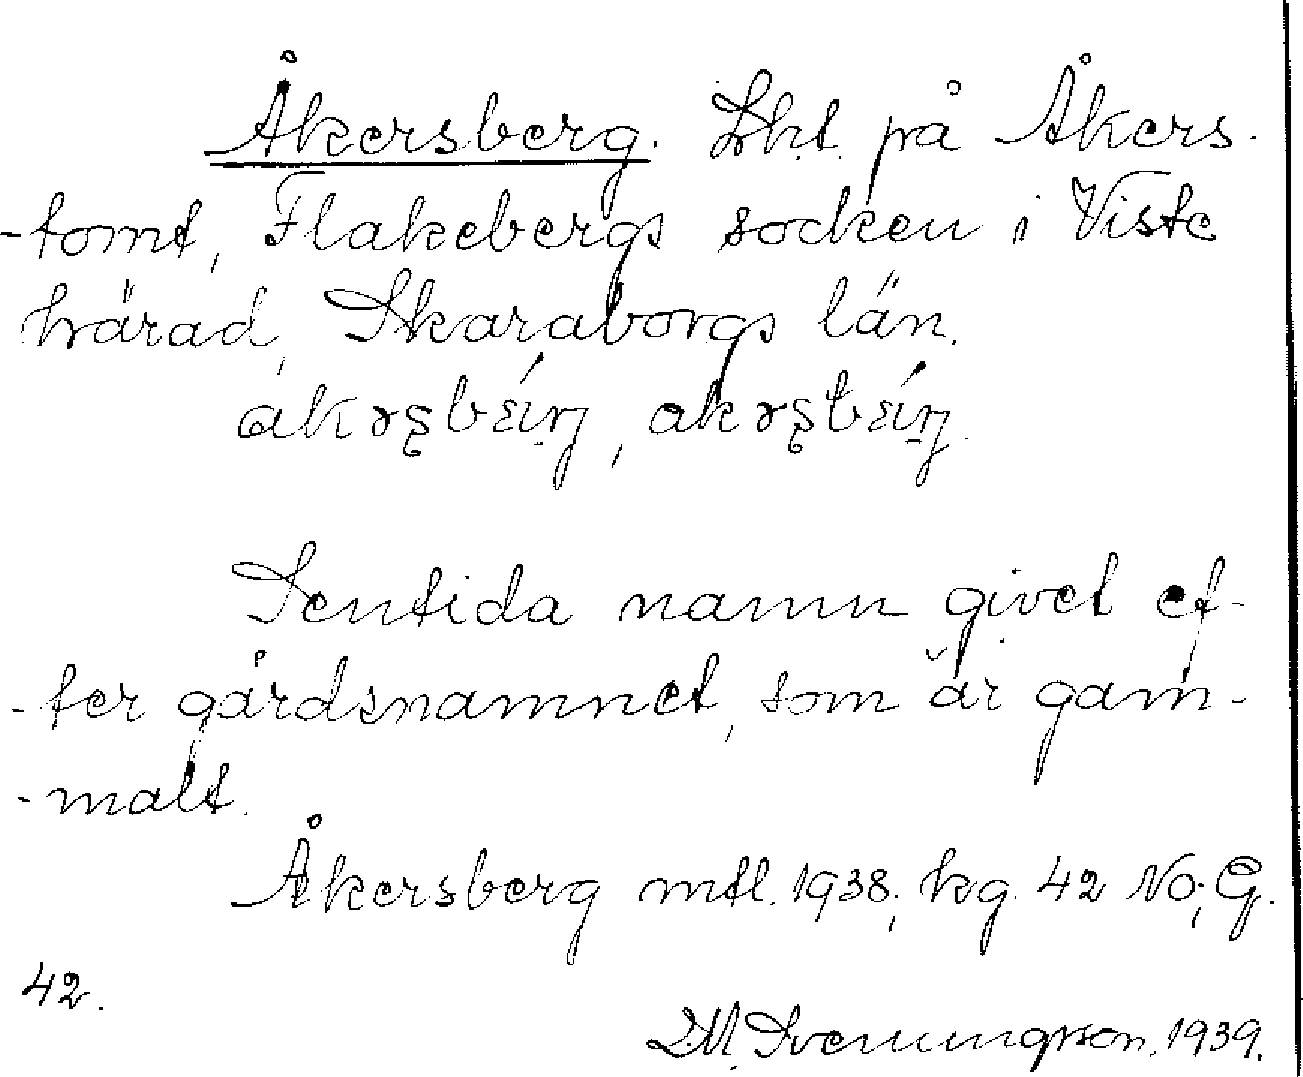 Åkersberg. Lht. på Åkers-
-tomt, Flakebergs socken i Viste
härad, Skaraborgs län.
Sentida namn givet ef-
-ter gårdsnamnet, som är gam-
-malt.
Åkersberg mtl. 1938; kg. 42 NO; G.
42.
Svenungsson. 1939.